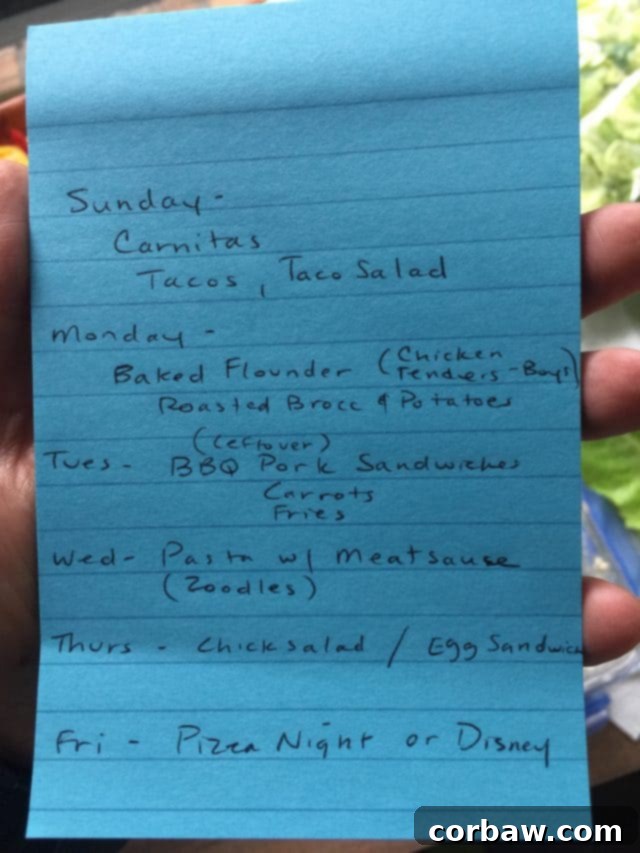 Sunday -
Carnitas
Tacos, Taco Salad
Monday -
Baked Flounder (Chicken Tenders - Boys)
Roasted Brocc & Potatoes
(leftover)
Tues - BBQ Pork Sandwiches
Carrots
Fries
Wed - Pasta w/ Meatsause
(Zoodles)
Thurs - Chick salad / Egg Sandwich
Fri - Pizza Night or Disney
corbaw.com